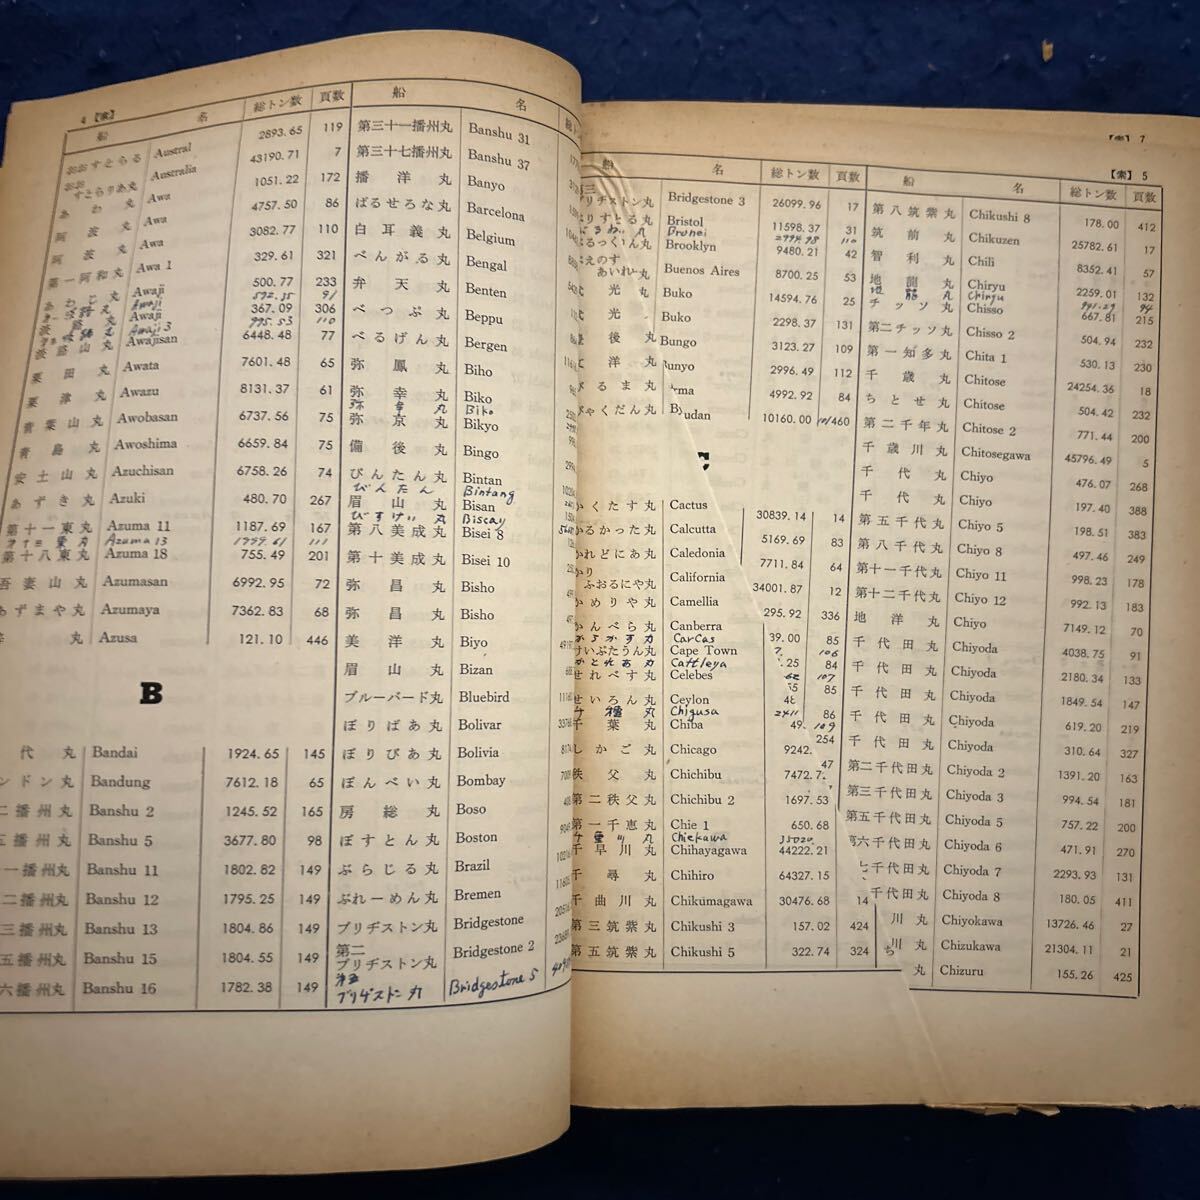 4 【索】
船 名 総トン数 頁数
おおすとらる Austral 2893.65 119
おおすとらりあ丸 Australia 43190.71 7
あわ丸 Awa 1051.22 172
阿波丸 Awa 4757.50 86
阿波丸 Awa 3082.77 110
第一阿和丸 Awa 1 329.61 321
あわじ丸 Awaji 500.77 233
Awaji 592.35 91
Awaji 367.09 306
Awaji 3 795.53 110
淡路山丸 Awajisan 6448.48 77
粟田丸 Awata 7601.48 65
粟津丸 Awazu 8131.37 61
青葉山丸 Awobasan 6737.56 75
青島丸 Awoshima 6659.84 75
安土山丸 Azuchisan 6758.26 74
あずき丸 Azuki 480.70 267
第十一東丸 Azuma 11 1187.69 167
Azuma 13 1999.61 111
第十八東丸 Azuma 18 755.49 201
吾妻山丸 Azumasan 6992.95 72
あずまや丸 Azumaya 7362.83 68
丸 Azusa 121.10 446
B
代丸 Bandai 1924.65 145
ンドン丸 Bandung 7612.18 65
二播州丸 Banshu 2 1245.52 165
五播州丸 Banshu 5 3677.80 98
一播州丸 Banshu 11 1802.82 149
二播州丸 Banshu 12 1795.25 149
三播州丸 Banshu 13 1804.86 149
五播州丸 Banshu 15 1804.55 149
六播州丸 Banshu 16 1782.38 149
船 名 総トン
第三十一播州丸 Banshu 31
第三十七播州丸 Banshu 37
播洋丸 Banyo
ばるせろな丸 Barcelona
白耳義丸 Belgium
べんがる丸 Bengal
弁天丸 Benten
べっぷ丸 Beppu
べるげん丸 Bergen
弥鳳丸 Biho
弥幸丸 Biko
弥幸丸 Biko
弥京丸 Bikyo
備後丸 Bingo
びんたん丸 Bintan
びんたん Bintang
眉山丸 Bisan
びすけい丸 Biscay
第八美成丸 Bisei 8
第十美成丸 Bisei 10
弥昌丸 Bisho
弥昌丸 Bisho
美洋丸 Biyo
眉山丸 Bizan
ブルーバード丸 Bluebird
ぼりばあ丸 Bolivar
ぼりびあ丸 Bolivia
ぼんべい丸 Bombay
房総丸 Boso
ぼすとん丸 Boston
ぶらじる丸 Brazil
ぶれーめん丸 Bremen
ブリヂストン丸 Bridgestone
第二ブリヂストン丸 Bridgestone 2
ブリヂストン丸 Bridgestone 5
【索】 7
船 名 総トン数 頁数
三ブリヂストン丸 Bridgestone 3 26099.96 17
りすとる丸 Bristol 11598.37 31
Brunei 2994.98 110
るっくりん丸 Brooklyn 9480.21 42
えのすあいれ丸 Buenos Aires 8700.25 53
光丸 Buko 14594.76 25
光丸 Buko 2298.37 131
後丸 Bungo 3123.27 109
洋丸 Bunyo 2996.49 112
るま丸 rma 4992.92 84
ゃくだん丸 By udan 10160.00 10/460
かくたす丸 Cactus 30839.14 14
かるかった丸 Calcutta 5169.69 83
かれどにあ丸 Caledonia 7711.84 64
かりふおるにや丸 California 34001.87 12
かめりや丸 Camellia 295.92 336
かんべら丸 Canberra 39.00 85
からかす丸 Carcas 106
けいぷたうん丸 Cape Town .25 84
かとれあ丸 Cattleya 107
せれべす丸 Celebes 85
せいろん丸 Ceylon 86
千種丸 Chigusa 2411 109
千葉丸 Chiba 49. 254
しかご丸 Chicago 9242. 47
秩父丸 Chichibu 7472.7
第二秩父丸 Chichibu 2 1697.53
第一千恵丸 Chie 1 650.68
Chiekawa
千早川丸 Chihayagawa 44222.21
千尋丸 Chihiro 64327.15
千曲川丸 Chikumagawa 30476.68 14
第三筑紫丸 Chikushi 3 157.02 424
第五筑紫丸 Chikushi 5 322.74 324
【索】 5
船 名 総トン数 頁数
第八筑紫丸 Chikushi 8 178.00 412
筑前丸 Chikuzen 25782.61 17
智利丸 Chili 8352.41 57
地龍丸 Chiryu 2259.01 132
Chiryu 991.29 94
チッソ丸 Chisso 667.81 215
第二チッソ丸 Chisso 2 504.94 232
第一知多丸 Chita 1 530.13 230
千歳丸 Chitose 24254.36 18
ちとせ丸 Chitose 504.42 232
第二千年丸 Chitose 2 771.44 200
千歳川丸 Chitosegawa 45796.49 5
千代丸 Chiyo 476.07 268
千代丸 Chiyo 197.40 388
第五千代丸 Chiyo 5 198.51 383
第八千代丸 Chiyo 8 497.46 249
第十一千代丸 Chiyo 11 998.23 178
第十二千代丸 Chiyo 12 992.13 183
地洋丸 Chiyo 7149.12 70
千代田丸 Chiyoda 4038.75 91
千代田丸 Chiyoda 2180.34 133
千代田丸 Chiyoda 1849.54 147
千代田丸 Chiyoda 619.20 219
千代田丸 Chiyoda 310.64 327
第二千代田丸 Chiyoda 2 1391.20 163
第三千代田丸 Chiyoda 3 994.54 181
第五千代田丸 Chiyoda 5 757.22 200
第六千代田丸 Chiyoda 6 471.91 270
七千代田丸 Chiyoda 7 2293.93 131
千代田丸 Chiyoda 8 180.05 411
川丸 Chiyokawa 13726.46 27
川丸 Chizukawa 21304.11 21
ち丸 Chizuru 155.26 425